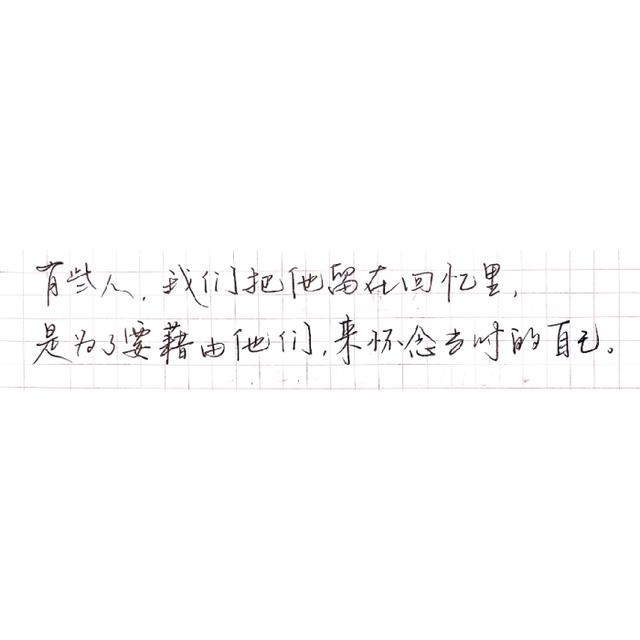 有些人，我们把他留在回忆里，
是为了要藉由他们，来怀念当时的自己。